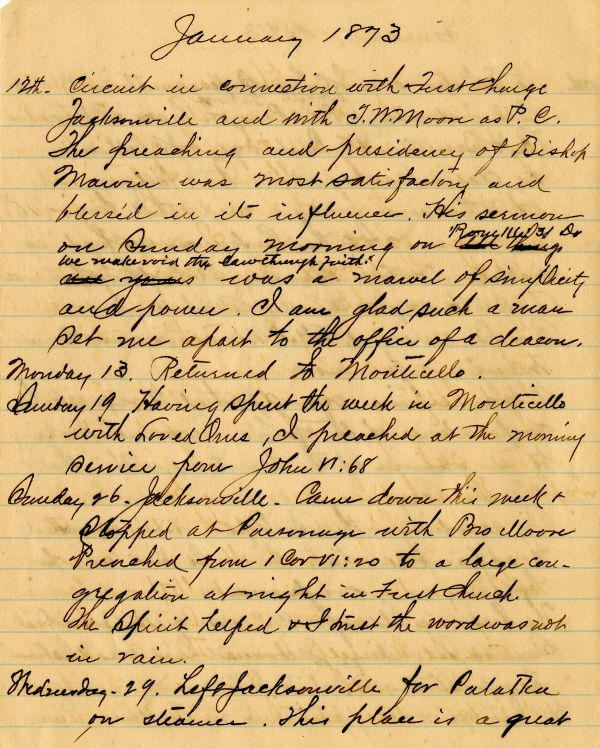 January 1873
12th. Circuit in connection with First Charge
Jacksonville and with T.W. Moore as P. C.
The preaching and presidency of Bishop
Marvin was most satisfactory and
blessed in its influence. His sermon
on Sunday morning on "Rom III, 31 Do
we make void the law through faith"
was a marvel of simplicity
and power. I am glad such a man
set me apart to the office of a deacon.
Monday 13. Returned to Monticello.
Sunday 19 Having spent the week in Monticello
with Loved Ones, I preached at the morning
service from John VI:68
Sunday 26. Jacksonville. Came down this week &
stopped at Parsonage with Bro Moore
Preached from 1 Cor VI:20 to a large con-
gregation at night in First Church.
The Spirit helped & I trust the word was not
in vain.
Wednesday. 29. Left Jacksonville for Palatka
on steamer. This place is a great